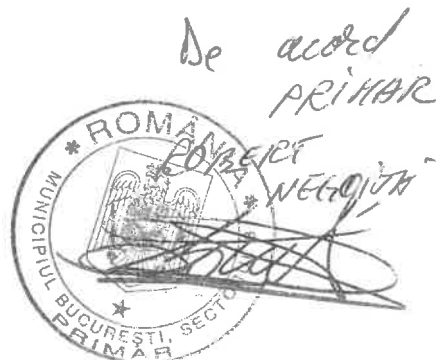 De acord
PRIMAR
ROBERT
NEGOIȚĂ
* ROMÂNIA *
MUNICIPIUL BUCUREȘTI, SECTO
PRIMAR